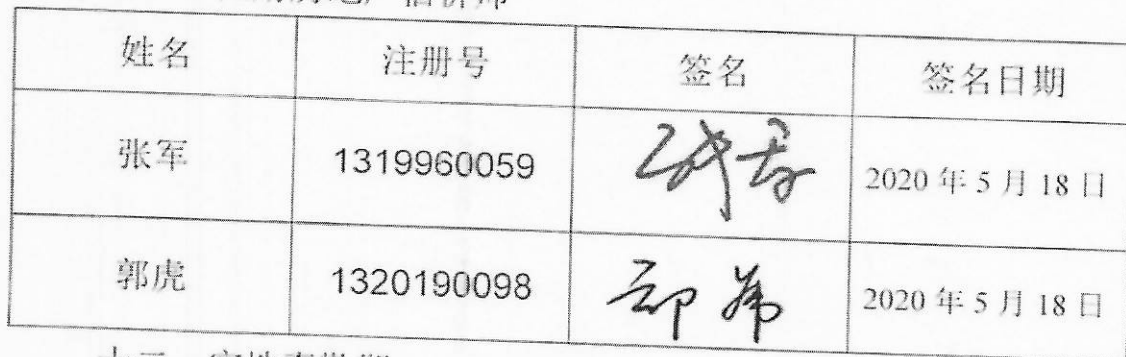 房地产估价师
姓名 注册号 签名 签名日期
张军 1319960059 2020年5月18日
郭虎 1320190098 2020年5月18日